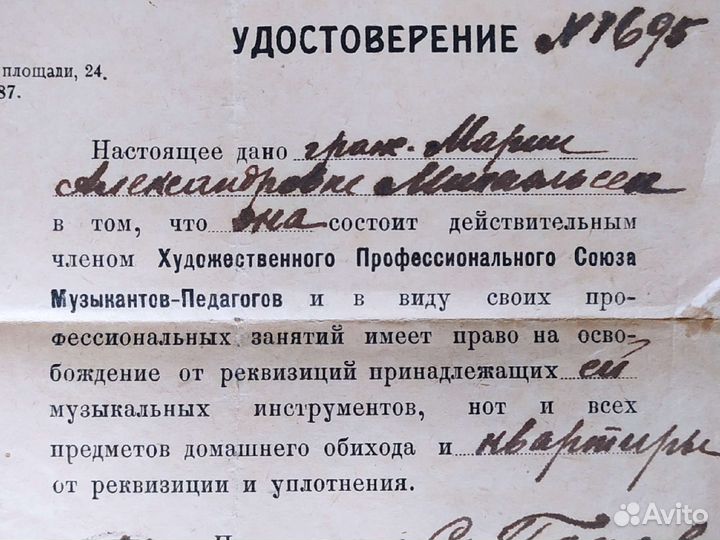 УДОСТОВЕРЕНИЕ № 1695
площади, 24.
87.
Настоящее дано граж. Марии
Александровне
в том, что она состоит действительным
членом Художественного Профессионального Союза
Музыкантов-Педагогов и в виду своих про-
фессиональных занятий имеет право на осво-
бождение от реквизиций принадлежащих ей
музыкальных инструментов, нот и всех
предметов домашнего обихода и квартиры
от реквизиции и уплотнения.
Avito